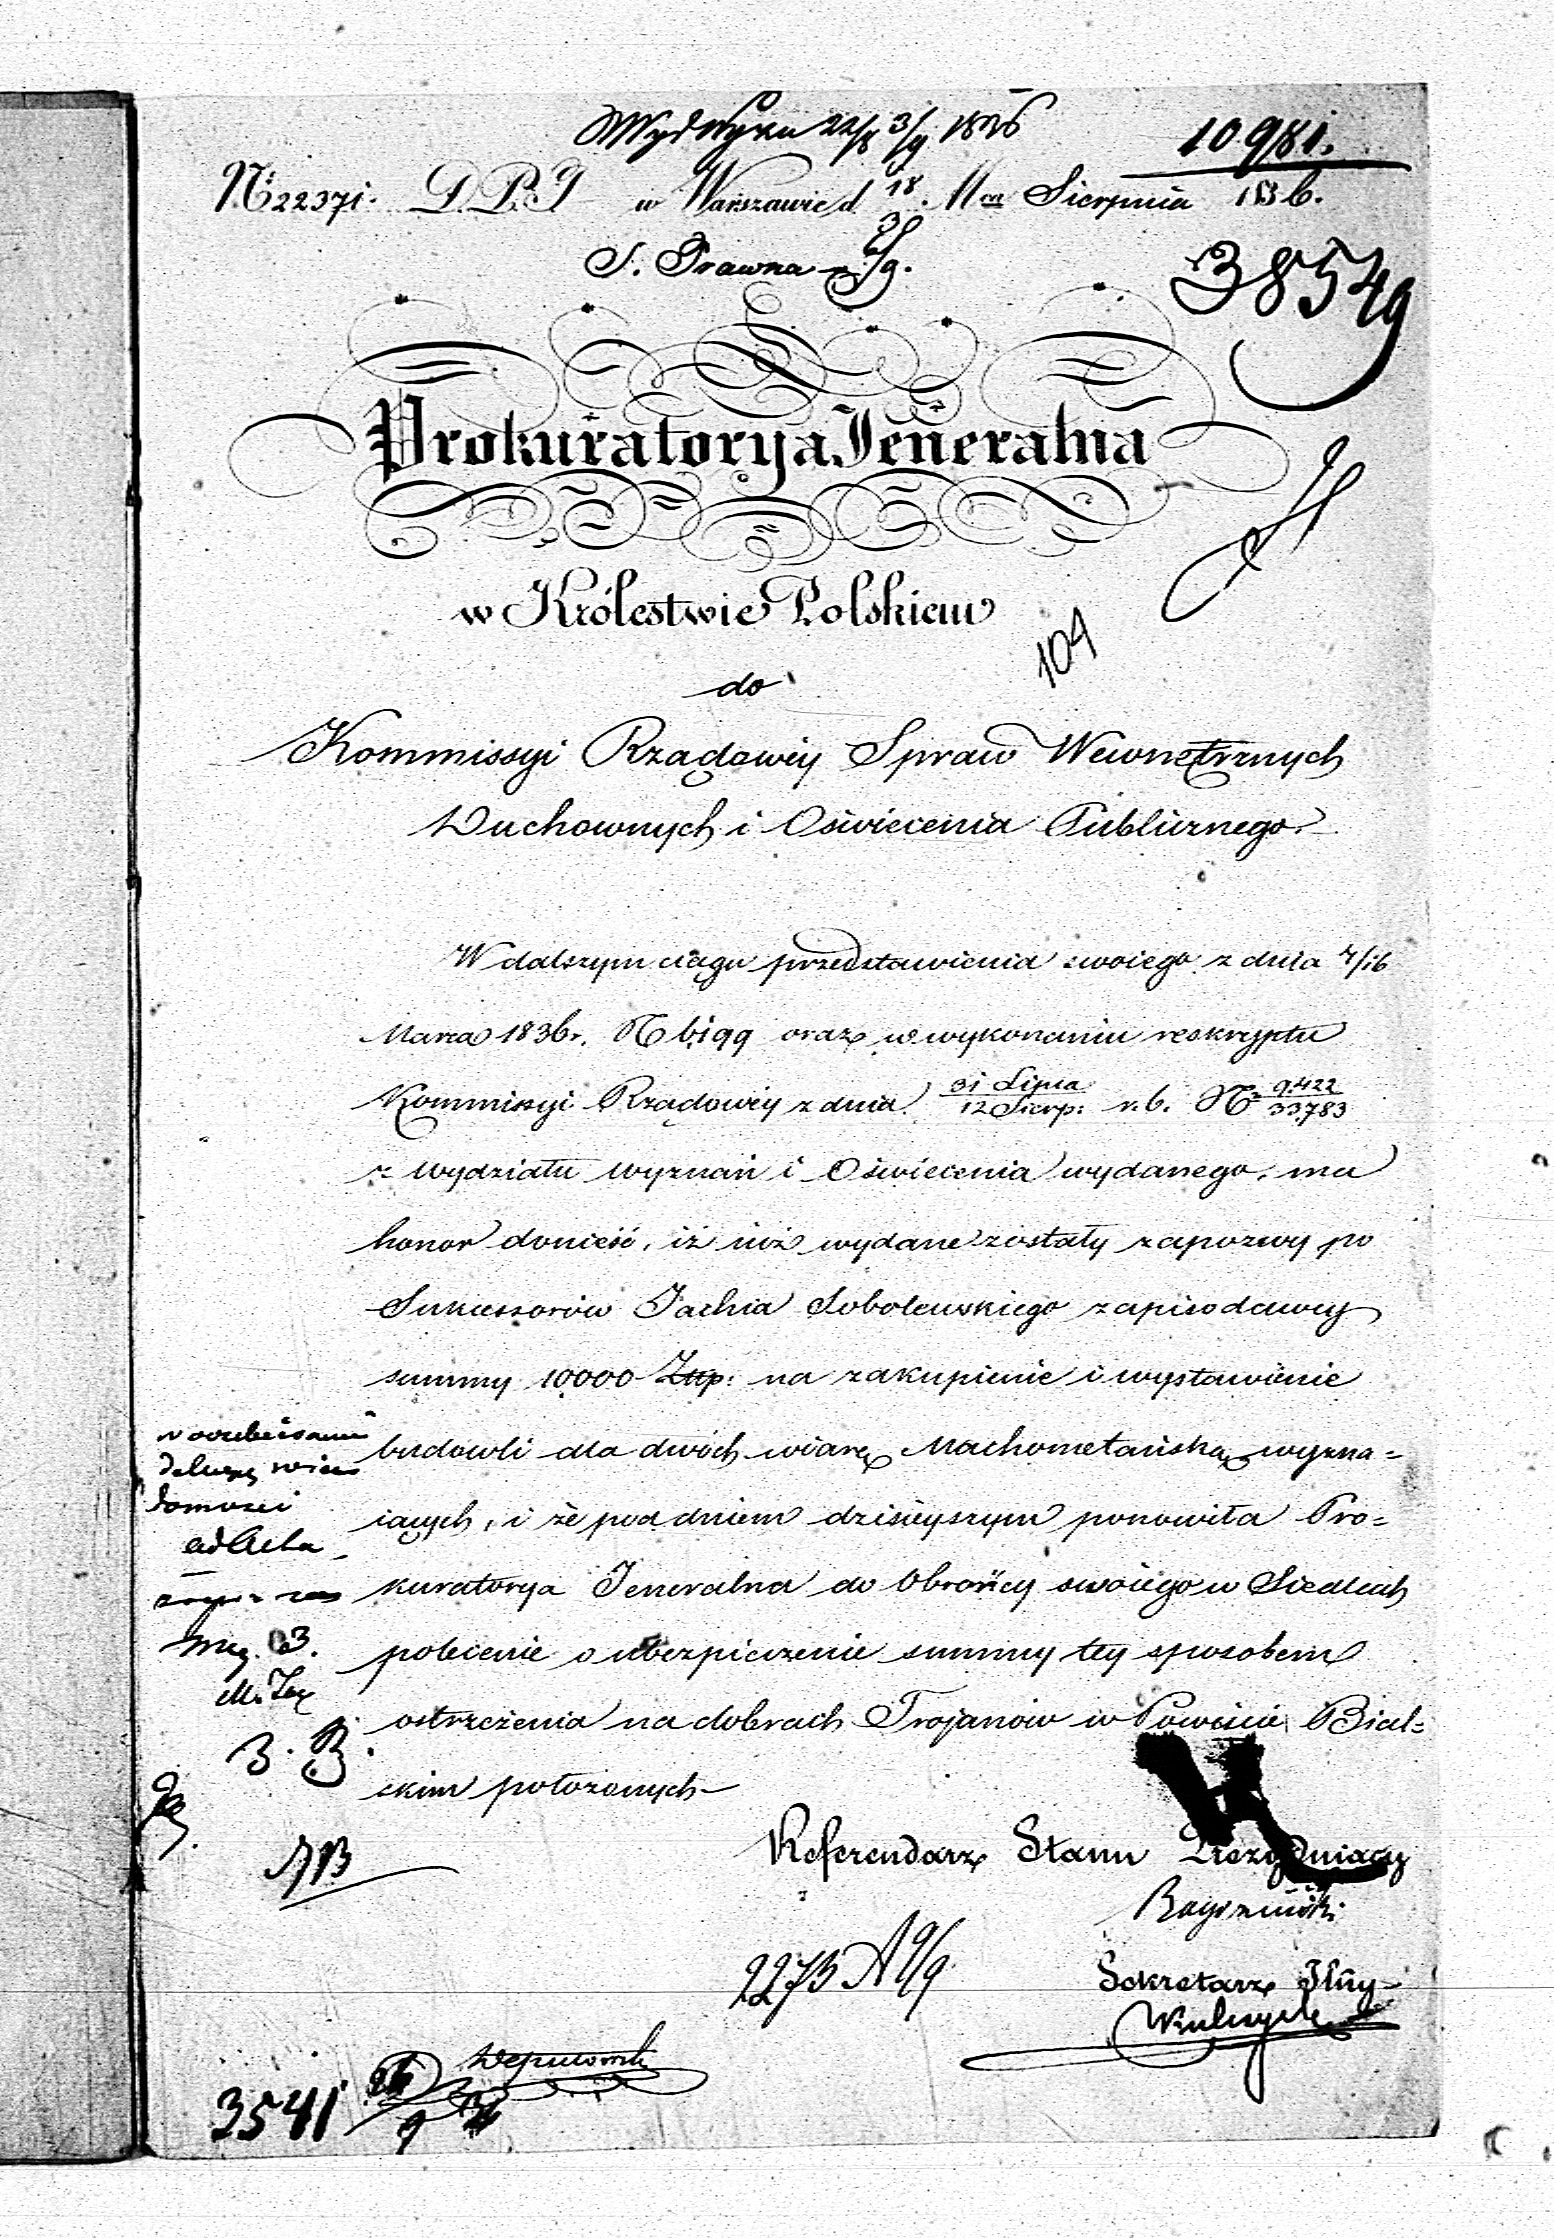 10981.
N. 22371. D.P.J w Warszawie d. 18. Sierpnia 1836.
S. Prawna
38549
Prokuratorya Jeneralna
w Królestwie Polskiem
104
do
Kommissyi Rządowéy Spraw Wewnętrznych
Duchownych i Oświecenia Publicznego.
W dalszym ciągu przedstawienia swoiego z dnia 4/16
Marca 1836 r. N 6199 oraz w wykonaniu reskryptu
Kommissyi Rządowéy z dnia 31 Lipca / 12 Sierp: r. b. N 9422 / 33,783
z wydziału wyznań i Oświecenia wydanego, ma
honor donieść, iż iuż wydane zostały zapozwy po
Sukcessorów Jachia Sobolewskiego zapisodawcy
summy 10000 Złp: na zakupienie i wystawienie
budowli dla dwóch wiarę Machometańską wyzna=
iących, i że pod dniem dzisieyszym ponowiła Pro=
kuratorya Jeneralna do Obrońcy swoiego w Siedlcach
polecenie o ubezpieczenie summy téy sposobem
ostrzeżenia na dobrach Trojanów w Powiecie Bial=
skim położonych
ad Acta
Referendarz Stanu Prezyduiący
Sekretarz Jlny
2273
3541